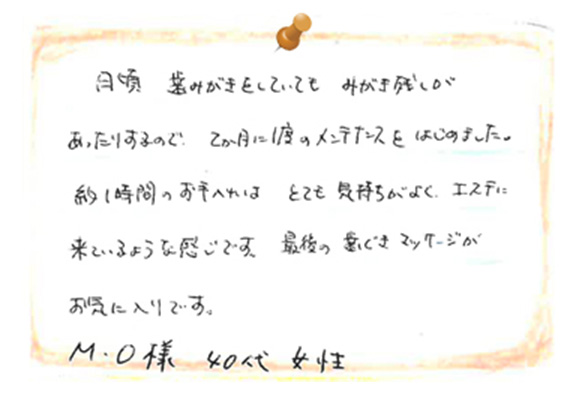 日頃 歯みがきをしていても みがき残しが
あったりするので、2か月に1度のメンテナンスを はじめました。
約1時間のお手入れは とても気持ちがよく、エステに
来ているような感じです。最後の歯ぐきマッサージが
お気に入りです。
M・O様 40代 女性